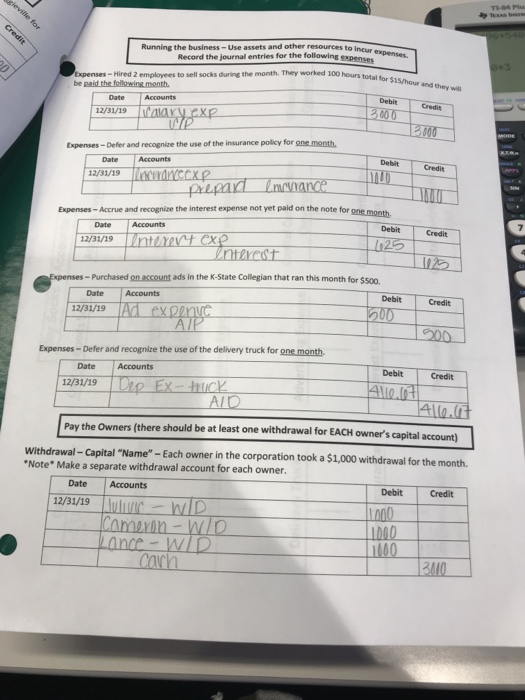 TI-84 Plus
Texas Instr
Credit
Running the business – Use assets and other resources to incur expenses.
Record the journal entries for the following expenses
Expenses – Hired 2 employees to sell socks during the month. They worked 100 hours total for $15/hour and they will
be paid the following month.
Date Accounts Debit Credit
12/31/19 Salary exp 3000
3000
Expenses – Defer and recognize the use of the insurance policy for one month.
Date Accounts Debit Credit
12/31/19 Insurance exp
prepaid Insurance
Expenses – Accrue and recognize the interest expense not yet paid on the note for one month.
Date Accounts Debit Credit
12/31/19 Interest exp
Interest
Expenses – Purchased on account ads in the K-State Collegian that ran this month for $500.
Date Accounts Debit Credit
12/31/19 Ad expense 500
A/P 500
Expenses – Defer and recognize the use of the delivery truck for one month.
Date Accounts Debit Credit
12/31/19 Dep Ex – truck 416.67
A/D 416.67
Pay the Owners (there should be at least one withdrawal for EACH owner's capital account)
Withdrawal – Capital "Name" – Each owner in the corporation took a $1,000 withdrawal for the month.
*Note* Make a separate withdrawal account for each owner.
Date Accounts Debit Credit
12/31/19 – W/D 1000
Cameron – W/D 1000
Lance – W/D 1000
Cash 3000
MODE
7